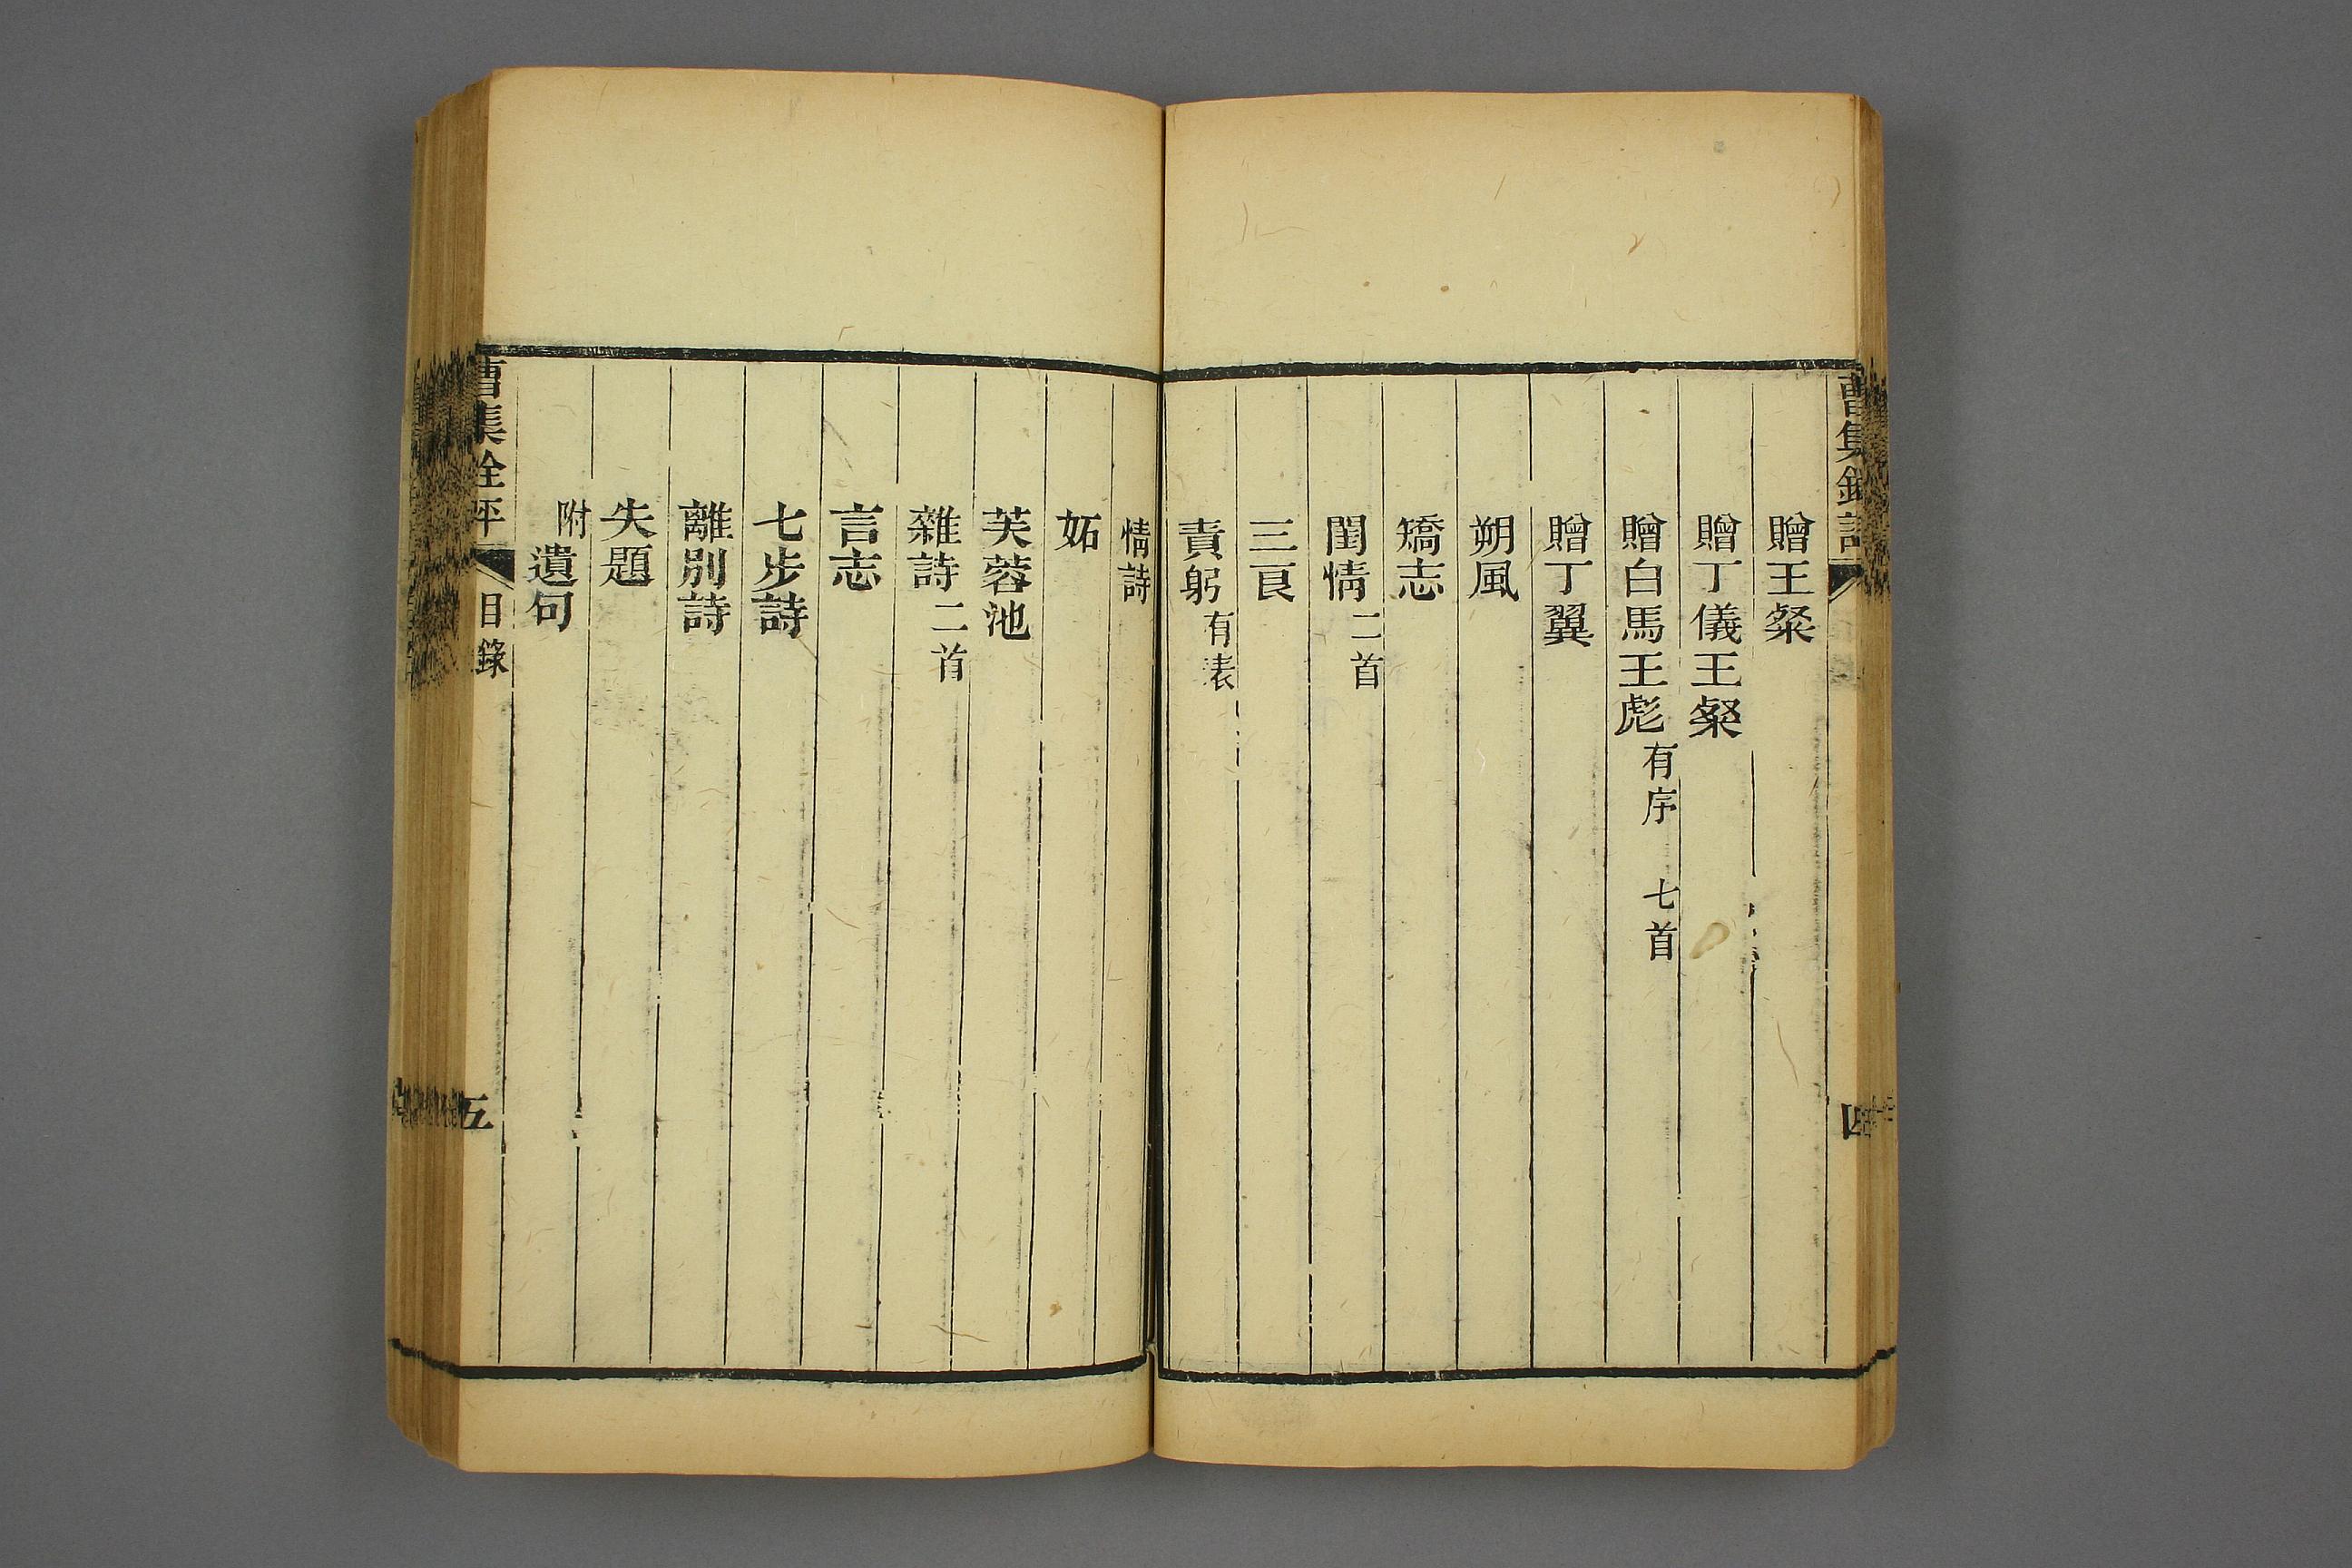 贈王粲
贈丁儀王粲
贈白馬王彪有序 七首
贈丁翼
朔風
矯志
閨情二首
三良
責躬有表
情詩
妬
芙蓉池
雜詩二首
言志
七步詩
離別詩
失題
附遺句
曹集銓評 目錄 五